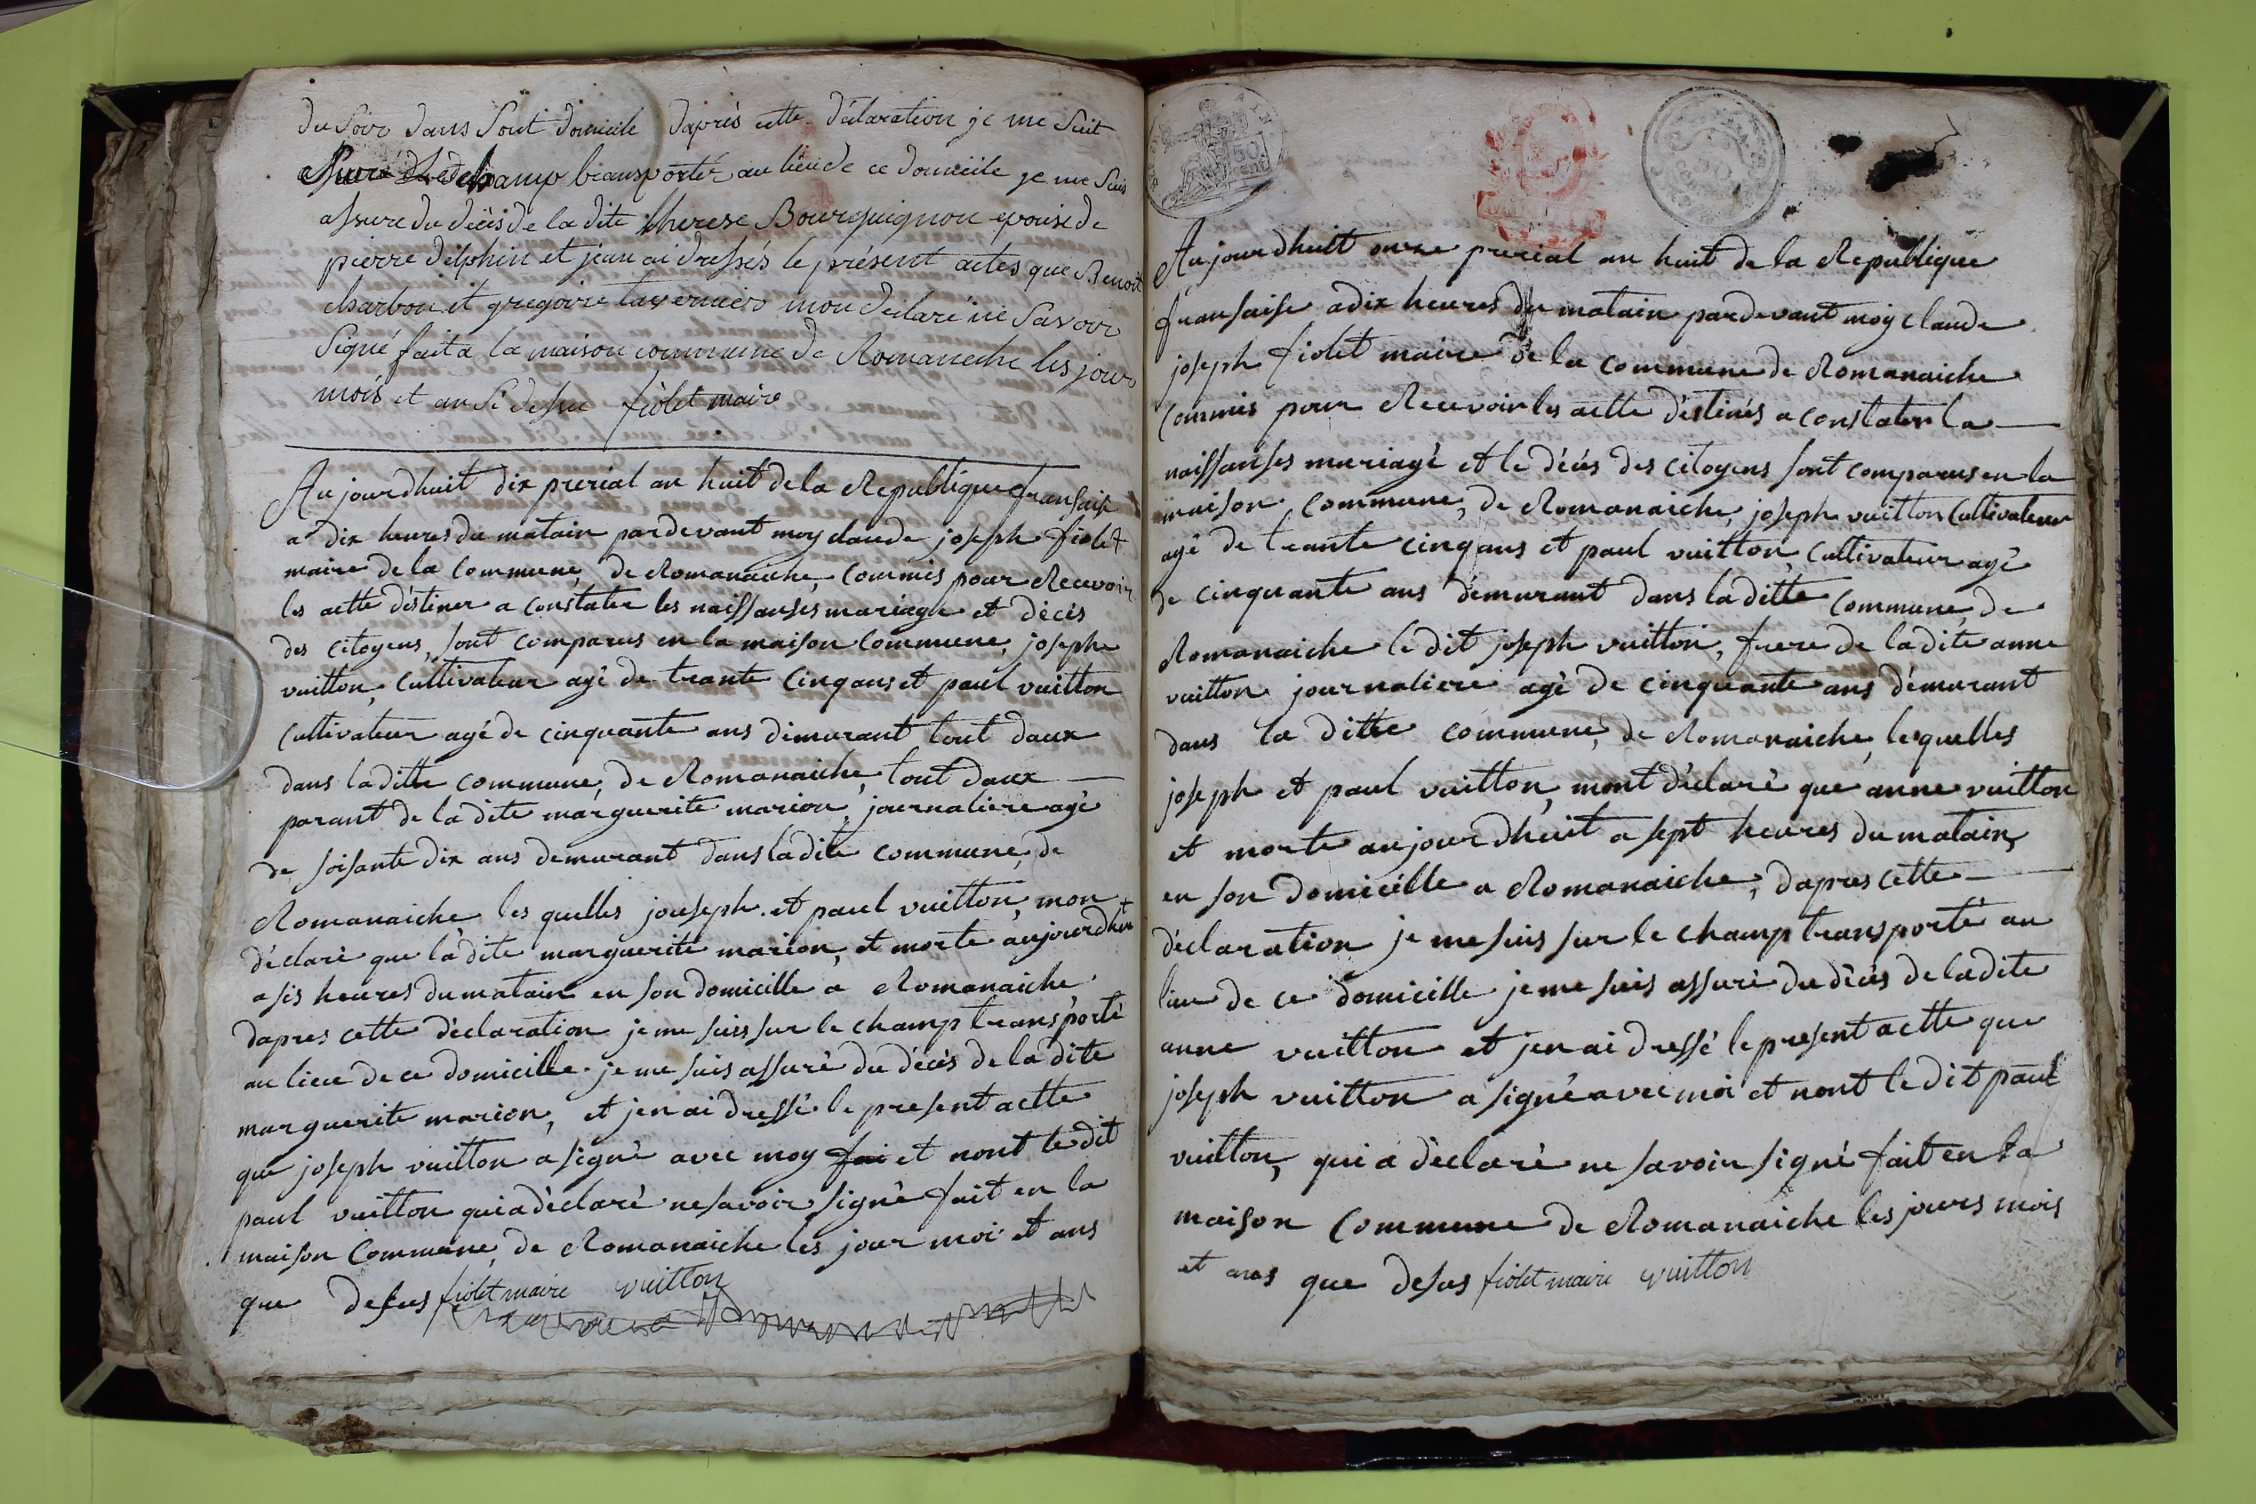 du Soir dans Sont domicile daprès cette déclaration je me Suit
champ transporté au lieu de ce domicile je me Suis
assure du décès de la dite therese Bourguignon epouse de
pierre delphin et jean ai dressés le présent actes que Benoit
charbon et gregoire tavernier mon declaré ne Savoir
Signé fait a la maison commune de Romaneche les jour
mois et an Si desu fiolet maire
Aujourdhuit dix prerial an huit de la Republique fransaise
a dix heures du matain pardevant moy claude joseph fiolet
maire de la Commune de Romanaiche, Commis pour Recevoir
les actte déstiner a constater les naissanses mariage et décès
des citoyens, sont comparus en la maison Commune, josephe
vuitton, Cultivateur agé de trante Cinq ans et paul vuitton
Cultivateur agé de cinquante ans dimurant tout daux
dans la ditte commune, de Romanaiche, tout daux
parant de la dite marguerite marion, journaliere agé
de soisante dix ans demurant dans la dite commune, de
Romanaiche, les quelles jouseph. et paul vuitton, mon
déclaré que la dite marguerite marion, et morte aujourdhui
a sis heures du matain en son domicille a Romanaiche
dapres cette déclaration je me suis sur le champ transporté
au lieu de ce domicille. je me suis assuré du décès de la dite
marguerite marion, et jen ai dressé le present actte
que joseph vuitton a signé avec moy fai et nont le dit
paul vuitton qui a déclaré ne savoir signé fait en la
maison Commune, de Romanaiche les jour moi et ans
que desus fiolet maire vuitton
Aujourdhuit onze prerial an huit de la Republique
fransaise a dix heures du matain pardevant moy claude
joseph fiolet maire de la commune de Romanaiche
Commis pour Recevoir les actte déstinés a constater la
naissanses mariagé et le décés des citoyens sont comparus en la
maison Commune, de Romanaiche, joseph vuitton Cultivateur
agé de trante cinq ans et paul vuitton, Cultivateur agé
de cinquante ans démurant dans la ditte Commune, de
Romanaiche le dit joseph vuitton, frere de la dite anne
vuitton journaliere agé de cinquante ans démurant
dans la ditte commune, de Romanaiche, lesquelles
joseph et paul vuitton, mont déclaré que anne vuitton
et morte aujourdhuit a sept heures du matain,
en son domicille a Romanaiche, dapres cette
déclaration je me suis sur le champ transporté au
lieu de ce domicille je me suis assuré du décés de la dite
anne vuitton et jen ai dressé le present actte que
joseph vuitton a signé avec moi et nont le dit paul
vuitton, qui a déclaré ne savoir signé fait en la
maison Commune de Romanaiche les jours mois
et ans que desus fiolet maire vuitton